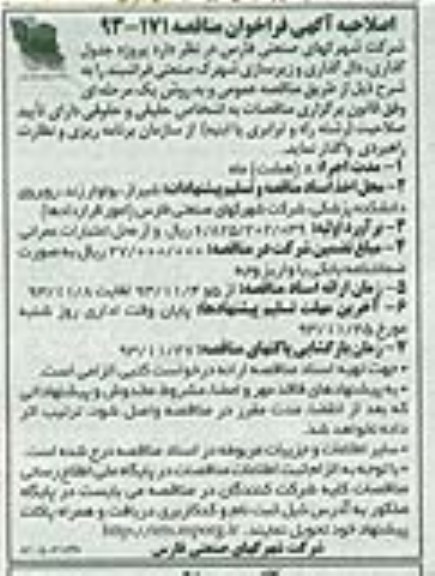 اصلاحیه آگهی فراخوان مناقصه ۱۷۱-۹۳
شرکت شهرکهای صنعتی فارس در نظر دارد پروژه جدول
گذاری، دال گذاری و زیرسازی شهرک صنعتی را به
شرح ذیل از طریق مناقصه عمومی و به روش یک مرحله ای
وفق قانون برگزاری مناقصات به اشخاص حقیقی و حقوقی دارای تأیید
صلاحیت (رشته راه و ترابری یا ابنیه) از سازمان برنامه ریزی و نظارت
راهبردی واگذار نماید.
۱- مدت اجراء: ۸ (هشت) ماه
۲- محل اخذ اسناد مناقصه و تسلیم پیشنهادات: شیراز، بولوار زند، روبروی
دانشکده پزشکی، شرکت شهرکهای صنعتی فارس (امور قراردادها)
۳- برآورد اولیه: ریال و از محل اعتبارات عمرانی
۴- مبلغ تضمین شرکت در مناقصه: ۲۷/۰۰۰/۰۰۰ ریال به صورت
ضمانتنامه بانکی یا واریز وجه
۵- زمان ارائه اسناد مناقصه: از لغایت ۹۳/۱۱/۸
۶- آخرین مهلت تسلیم پیشنهادها: پایان وقت اداری روز شنبه
مورخ ۹۳/۱۱/۲۵
۷- زمان بازگشایی پاکتهای مناقصه:
• جهت تهیه اسناد مناقصه ارائه درخواست کتبی الزامی است.
• به پیشنهادهای فاقد مهر و امضا، مشروط، مخدوش و پیشنهاداتی
که بعد از انقضا مدت مقرر در مناقصه واصل شود، ترتیب اثر
داده نخواهد شد.
• سایر اطلاعات و جزییات مربوطه در اسناد مناقصه درج شده است.
• با توجه به الزام ثبت اطلاعات مناقصات در پایگاه ملی اطلاع رسانی
مناقصات کلیه شرکت کنندگان در مناقصه می بایست در پایگاه
مذکور به آدرس ذیل ثبت نام و کد کاربری دریافت و همراه پاکات
پیشنهاد خود تحویل نمایند. http://iets.mporg.ir
شرکت شهرکهای صنعتی فارس